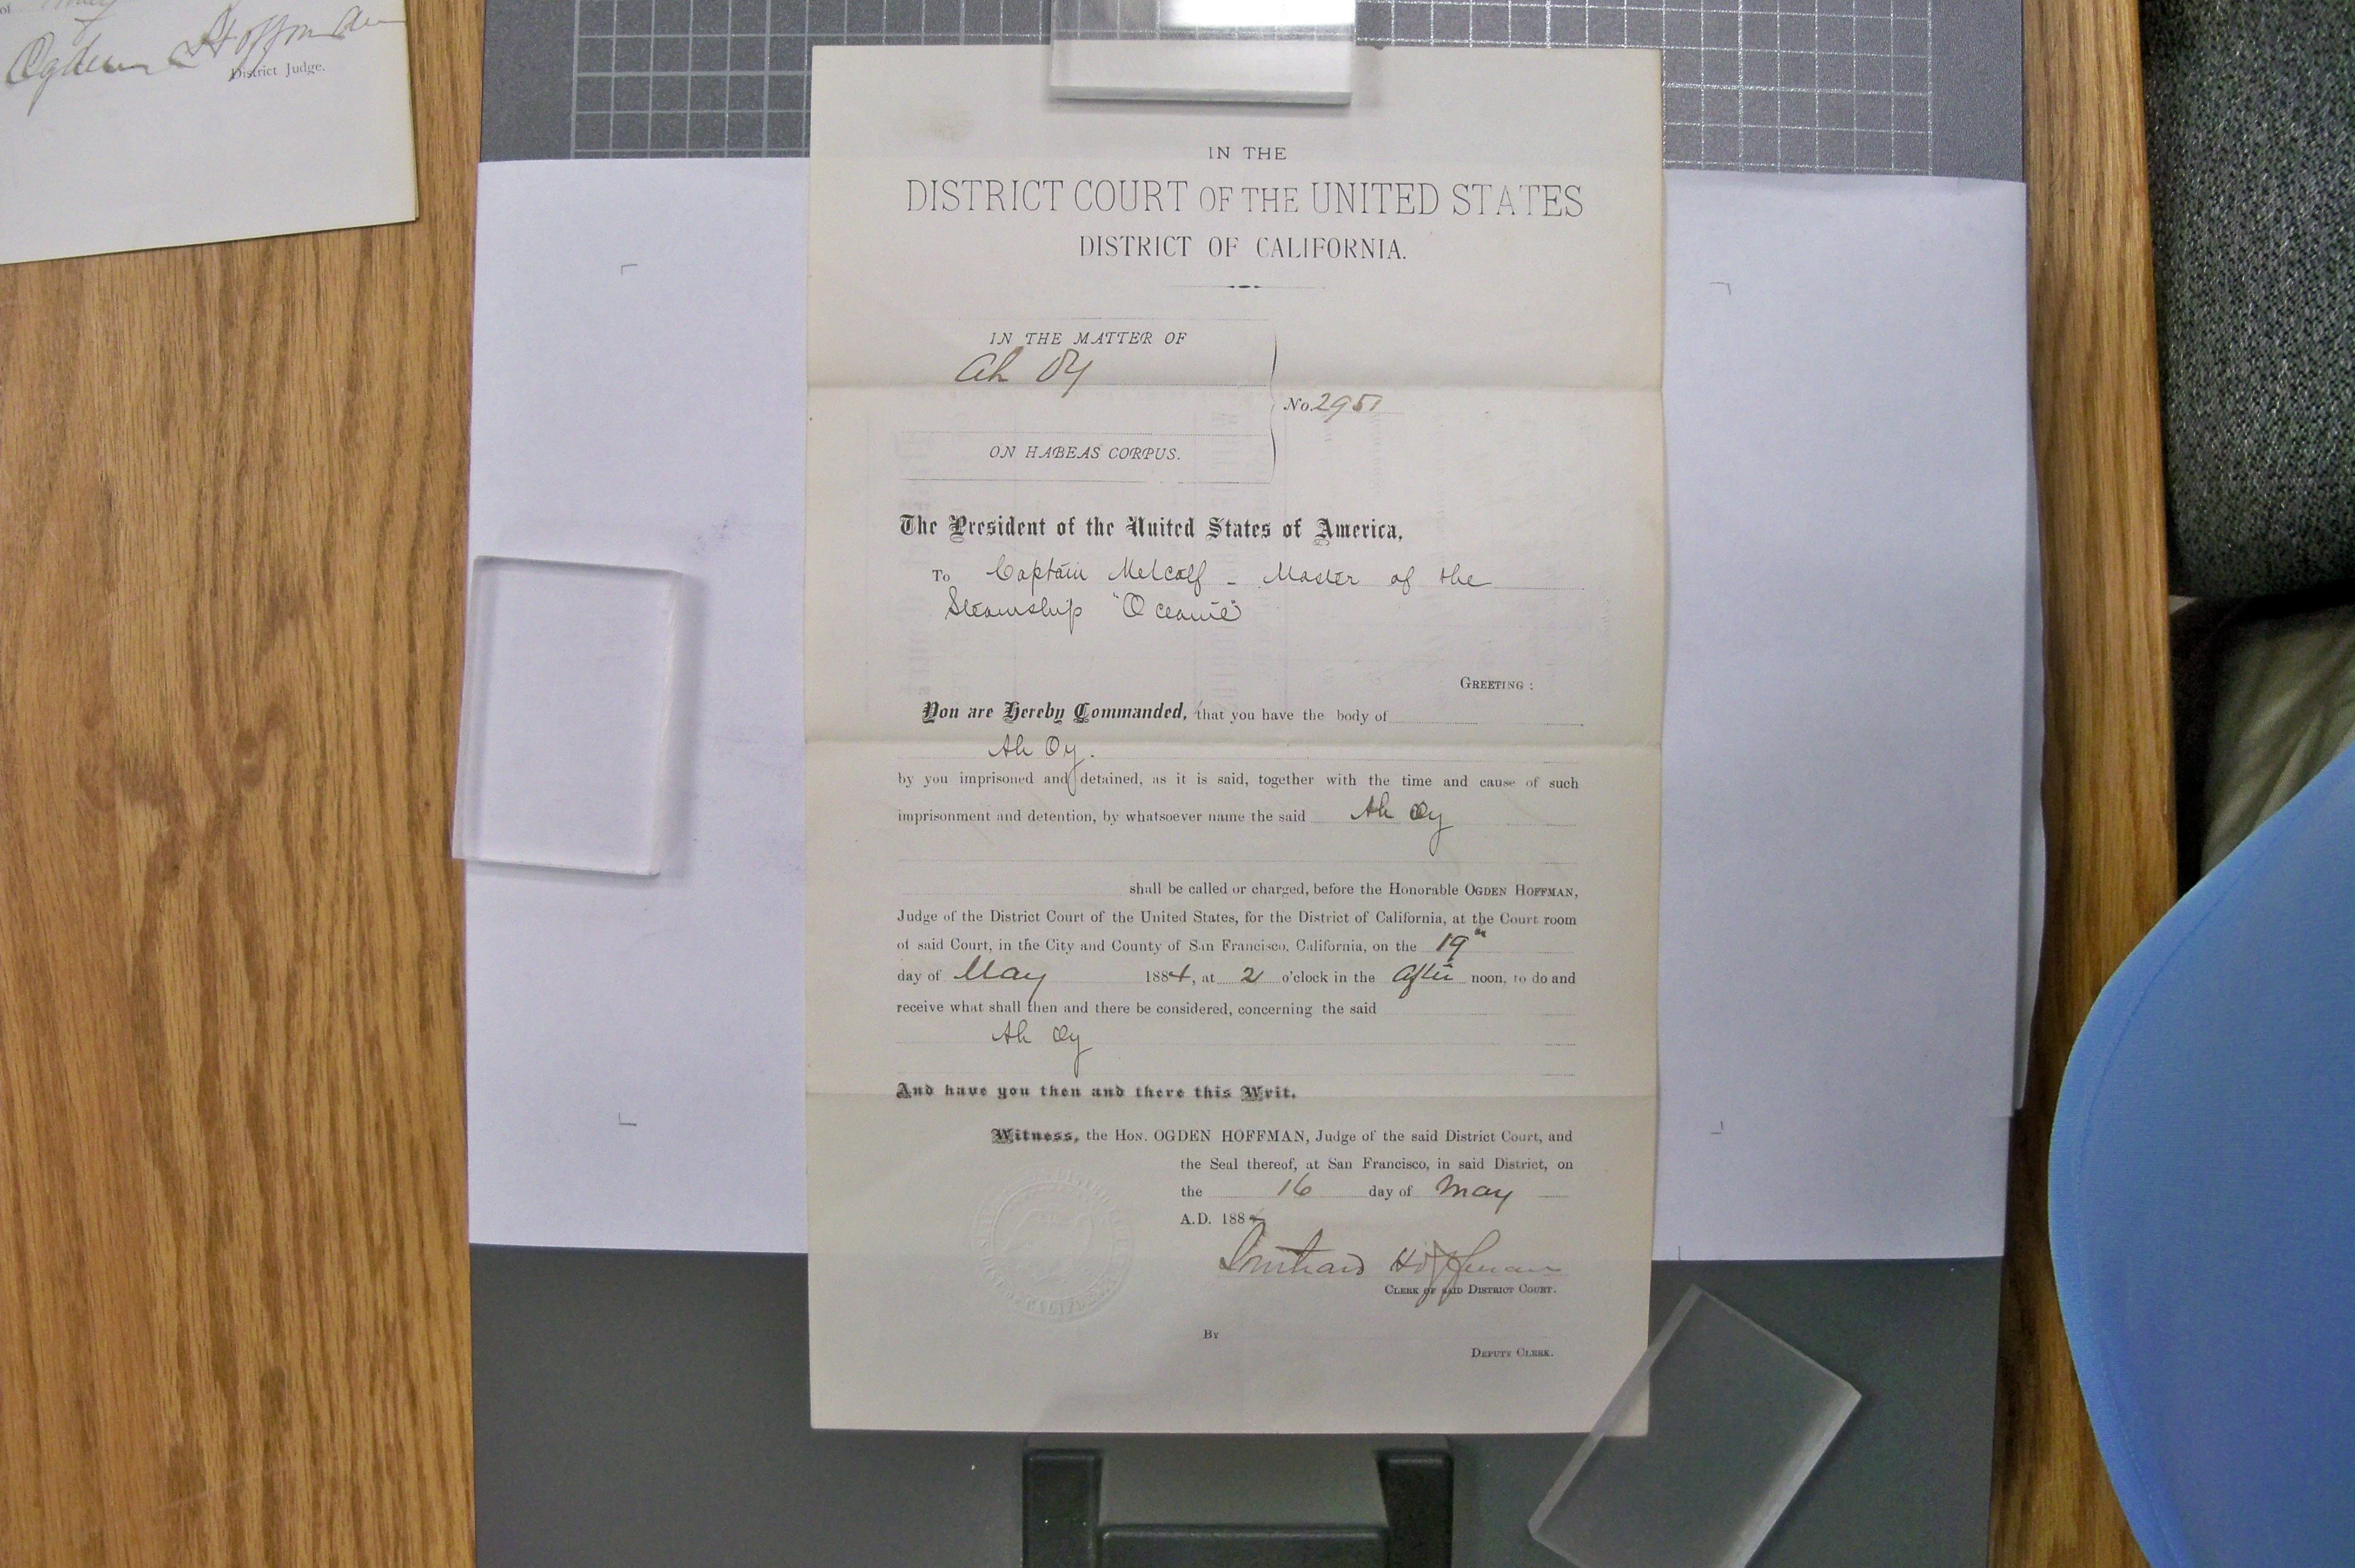 Ogden Hoffman
District Judge.
IN THE
DISTRICT COURT OF THE UNITED STATES
DISTRICT OF CALIFORNIA.
IN THE MATTER OF
Ah Oy
No. 2951
ON HABEAS CORPUS.
The President of the United States of America,
To Captain Metcalf - Master of the
Steamship "Oceanic"
GREETING :
You are Hereby Commanded, that you have the body of
Ah Oy.
by you imprisoned and detained, as it is said, together with the time and cause of such
imprisonment and detention, by whatsoever name the said Ah Oy
shall be called or charged, before the Honorable OGDEN HOFFMAN,
Judge of the District Court of the United States, for the District of California, at the Court room
of said Court, in the City and County of San Francisco, California, on the 19th
day of May 1884, at 2 o'clock in the After noon, to do and
receive what shall then and there be considered, concerning the said
Ah Oy
And have you then and there this Writ.
Witness, the HON. OGDEN HOFFMAN, Judge of the said District Court, and
the Seal thereof, at San Francisco, in said District, on
the 16 day of May
A.D. 1884
Southard Hoffman
CLERK OF SAID DISTRICT COURT.
By
DEPUTY CLERK.